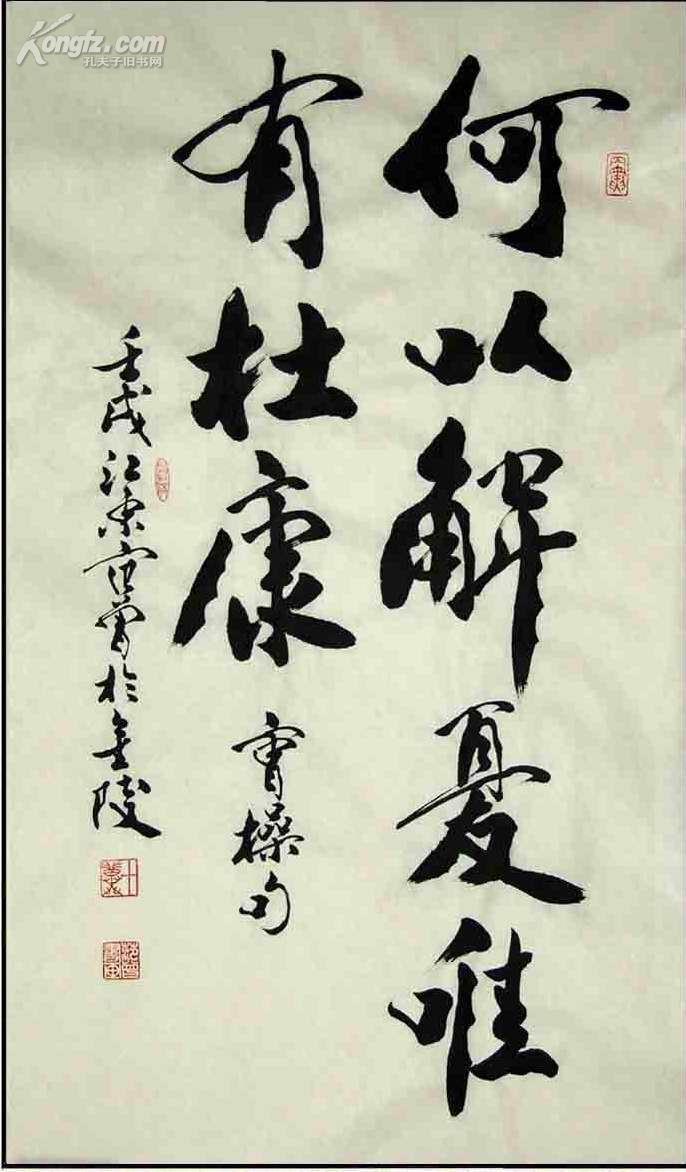 Kongfz.com
孔夫子旧书网
何以解憂唯
有杜康 曹操句
壬戌江東范曾於金陵